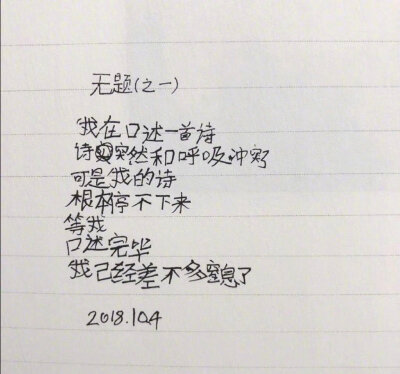 无题(之一)
我在口述一首诗
诗突然和呼吸冲突
可是我的诗
根本停不下来
等我
口述完毕
我已经差不多窒息了
2018.10.4